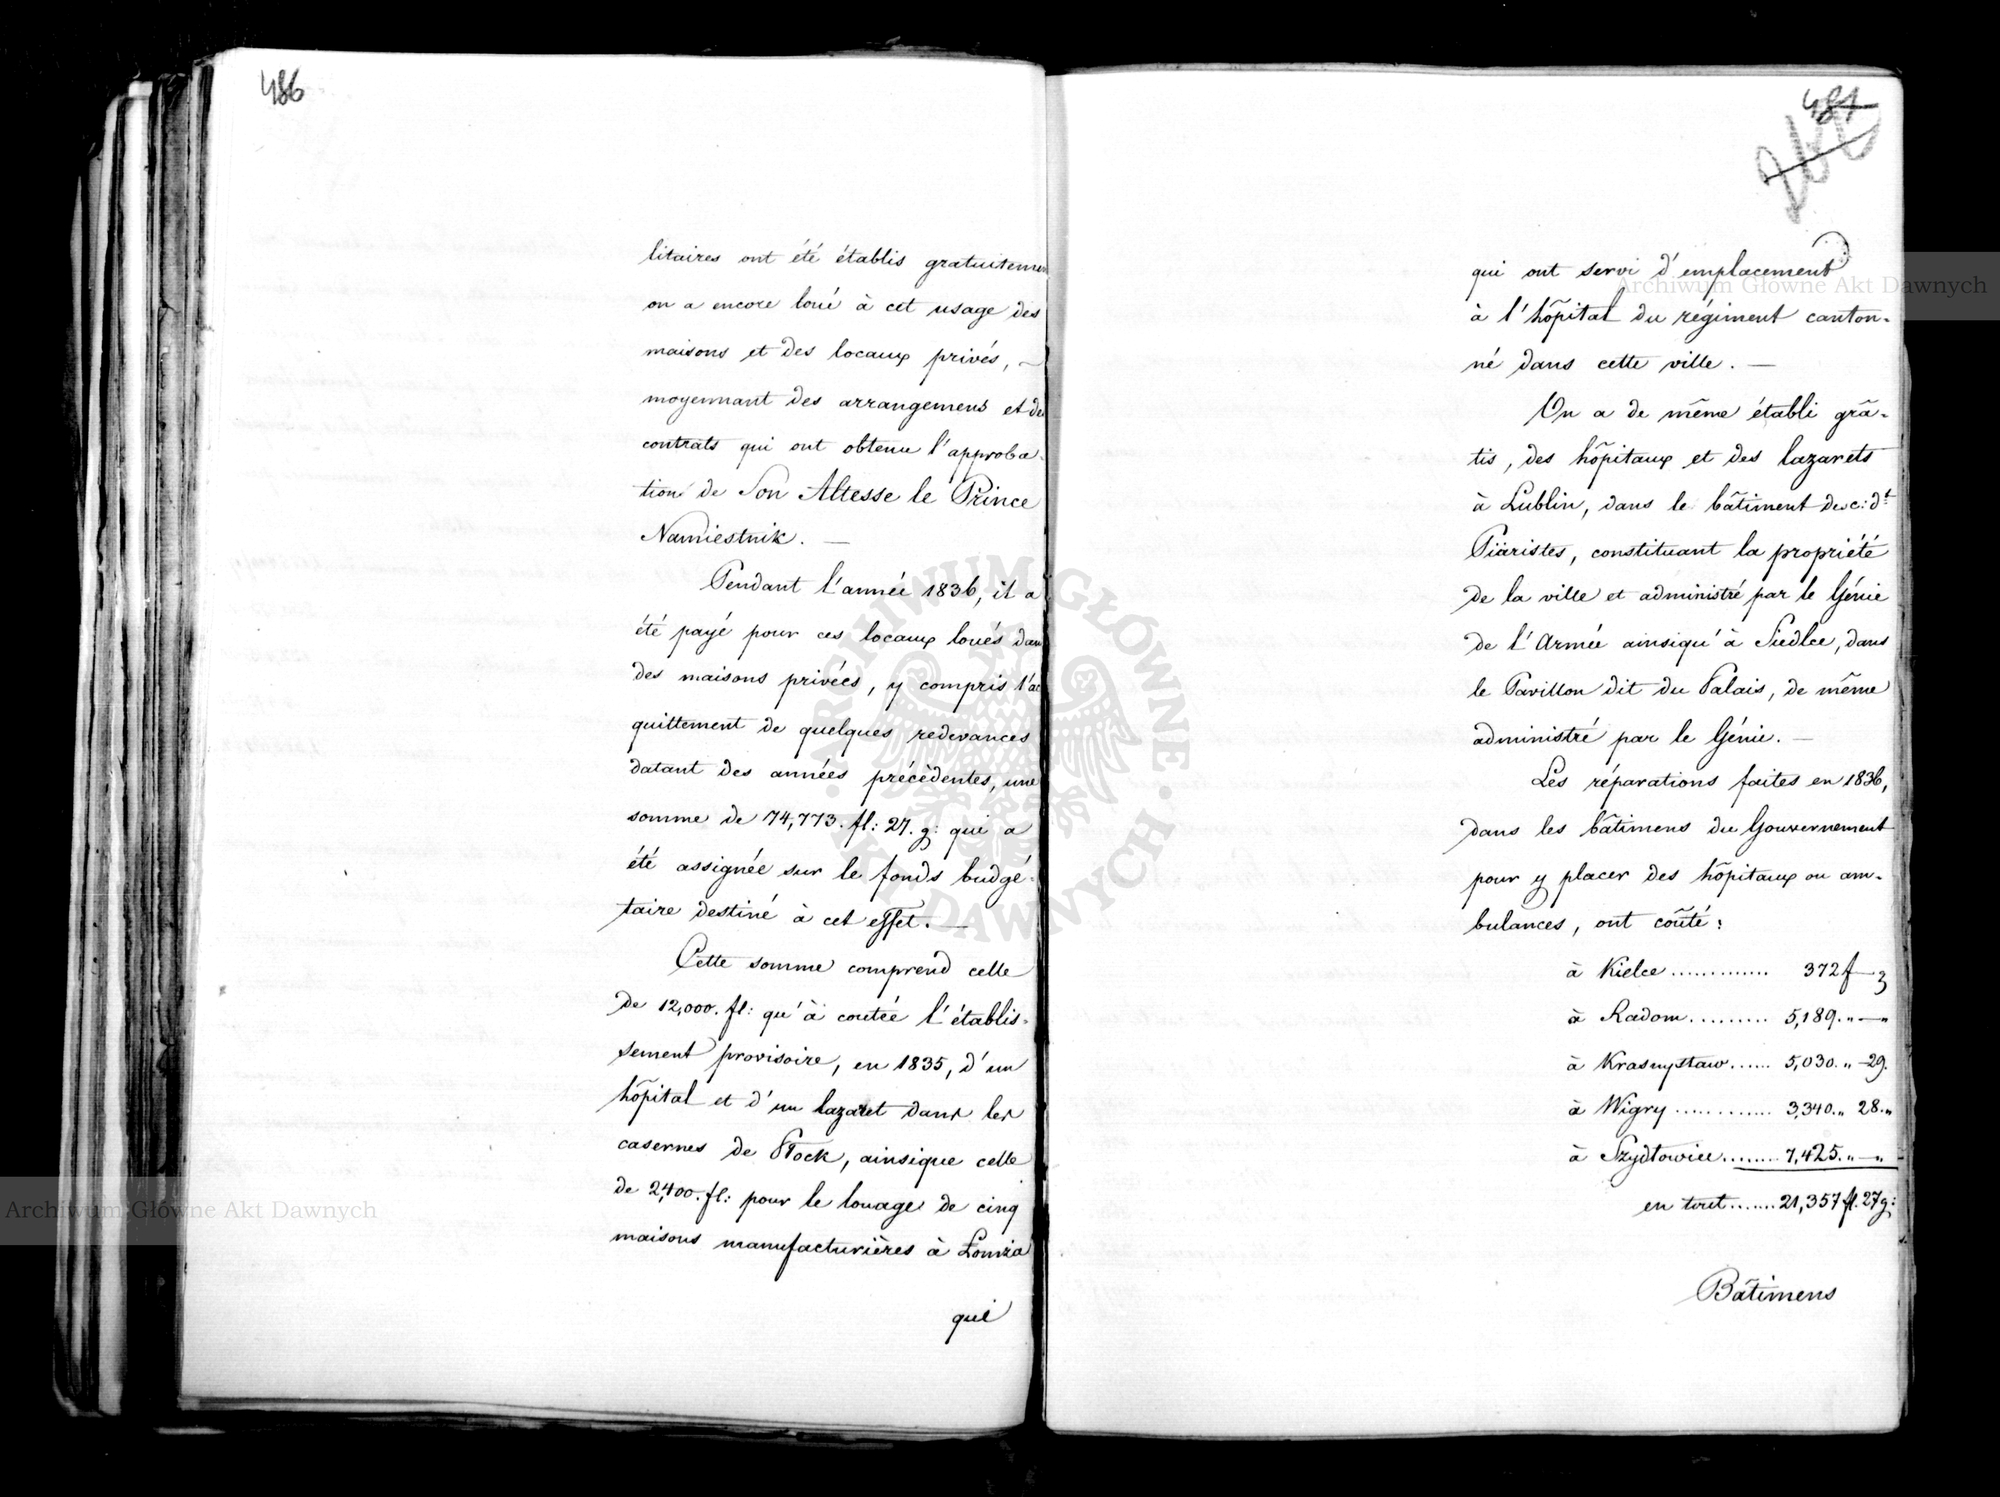 486
litaires ont été établis gratuitemen
on a encore loué à cet usage des
maisons et des locaux privés, —
moyennant des arrangemens et de
contrats qui ont obtenu l'approba-
tion de Son Altesse le Prince
Namiestnik. —
Pendant l'année 1836, il a
été payé pour ces locaux loués dan
des maisons privées, y compris l'ac
quittement de quelques redevances
datant des années précèdentes, une
somme de 74,773. fl: 27. g: qui a
été assignée sur le fonds budgé-
taire destiné à cet effet. —
Cette somme comprend celle
de 12,000. fl: qu'à coutée l'établis-
sement provisoire, en 1835, d'un
hôpital et d'un lazaret dans les
casernes de Płock, ainsique celle
de 2,400. fl: pour le louage de cinq
maisons manufacturières à Łomża
qui
487
qui ont servi d'emplacement
à l'hôpital du régiment canton-
né dans cette ville. —
On a de même établi gra-
tis, des hôpitaux et des lazarets
à Lublin, dans le bâtiment des c: dt
Piäristes, constituant la propriété
de la ville et administré par le Génie
de l'Armée ainsiqu'à Siedlce, dans
le Pavillon dit du Palais, de même
administré par le Génie. —
Les réparations faites en 1836,
dans les bâtimens du Gouvernement
pour y placer des hôpitaux ou am-
bulances, ont coûté:
à Kielce ............. 372 f — g
à Radom ......... 5,189. " — "
à Krasnystaw ...... 5,030. " — 29.
à Wigry ............ 3,340. " 28. "
à Szydłowiec ........ 7,425. " — "
en tout ....... 21,357 fl. 27 g:
Bâtimens
Archiwum Główne Akt Dawnych
Archiwum Główne Akt Dawnych
ARCHIWUM GŁÓWNE AKT DAWNYCH